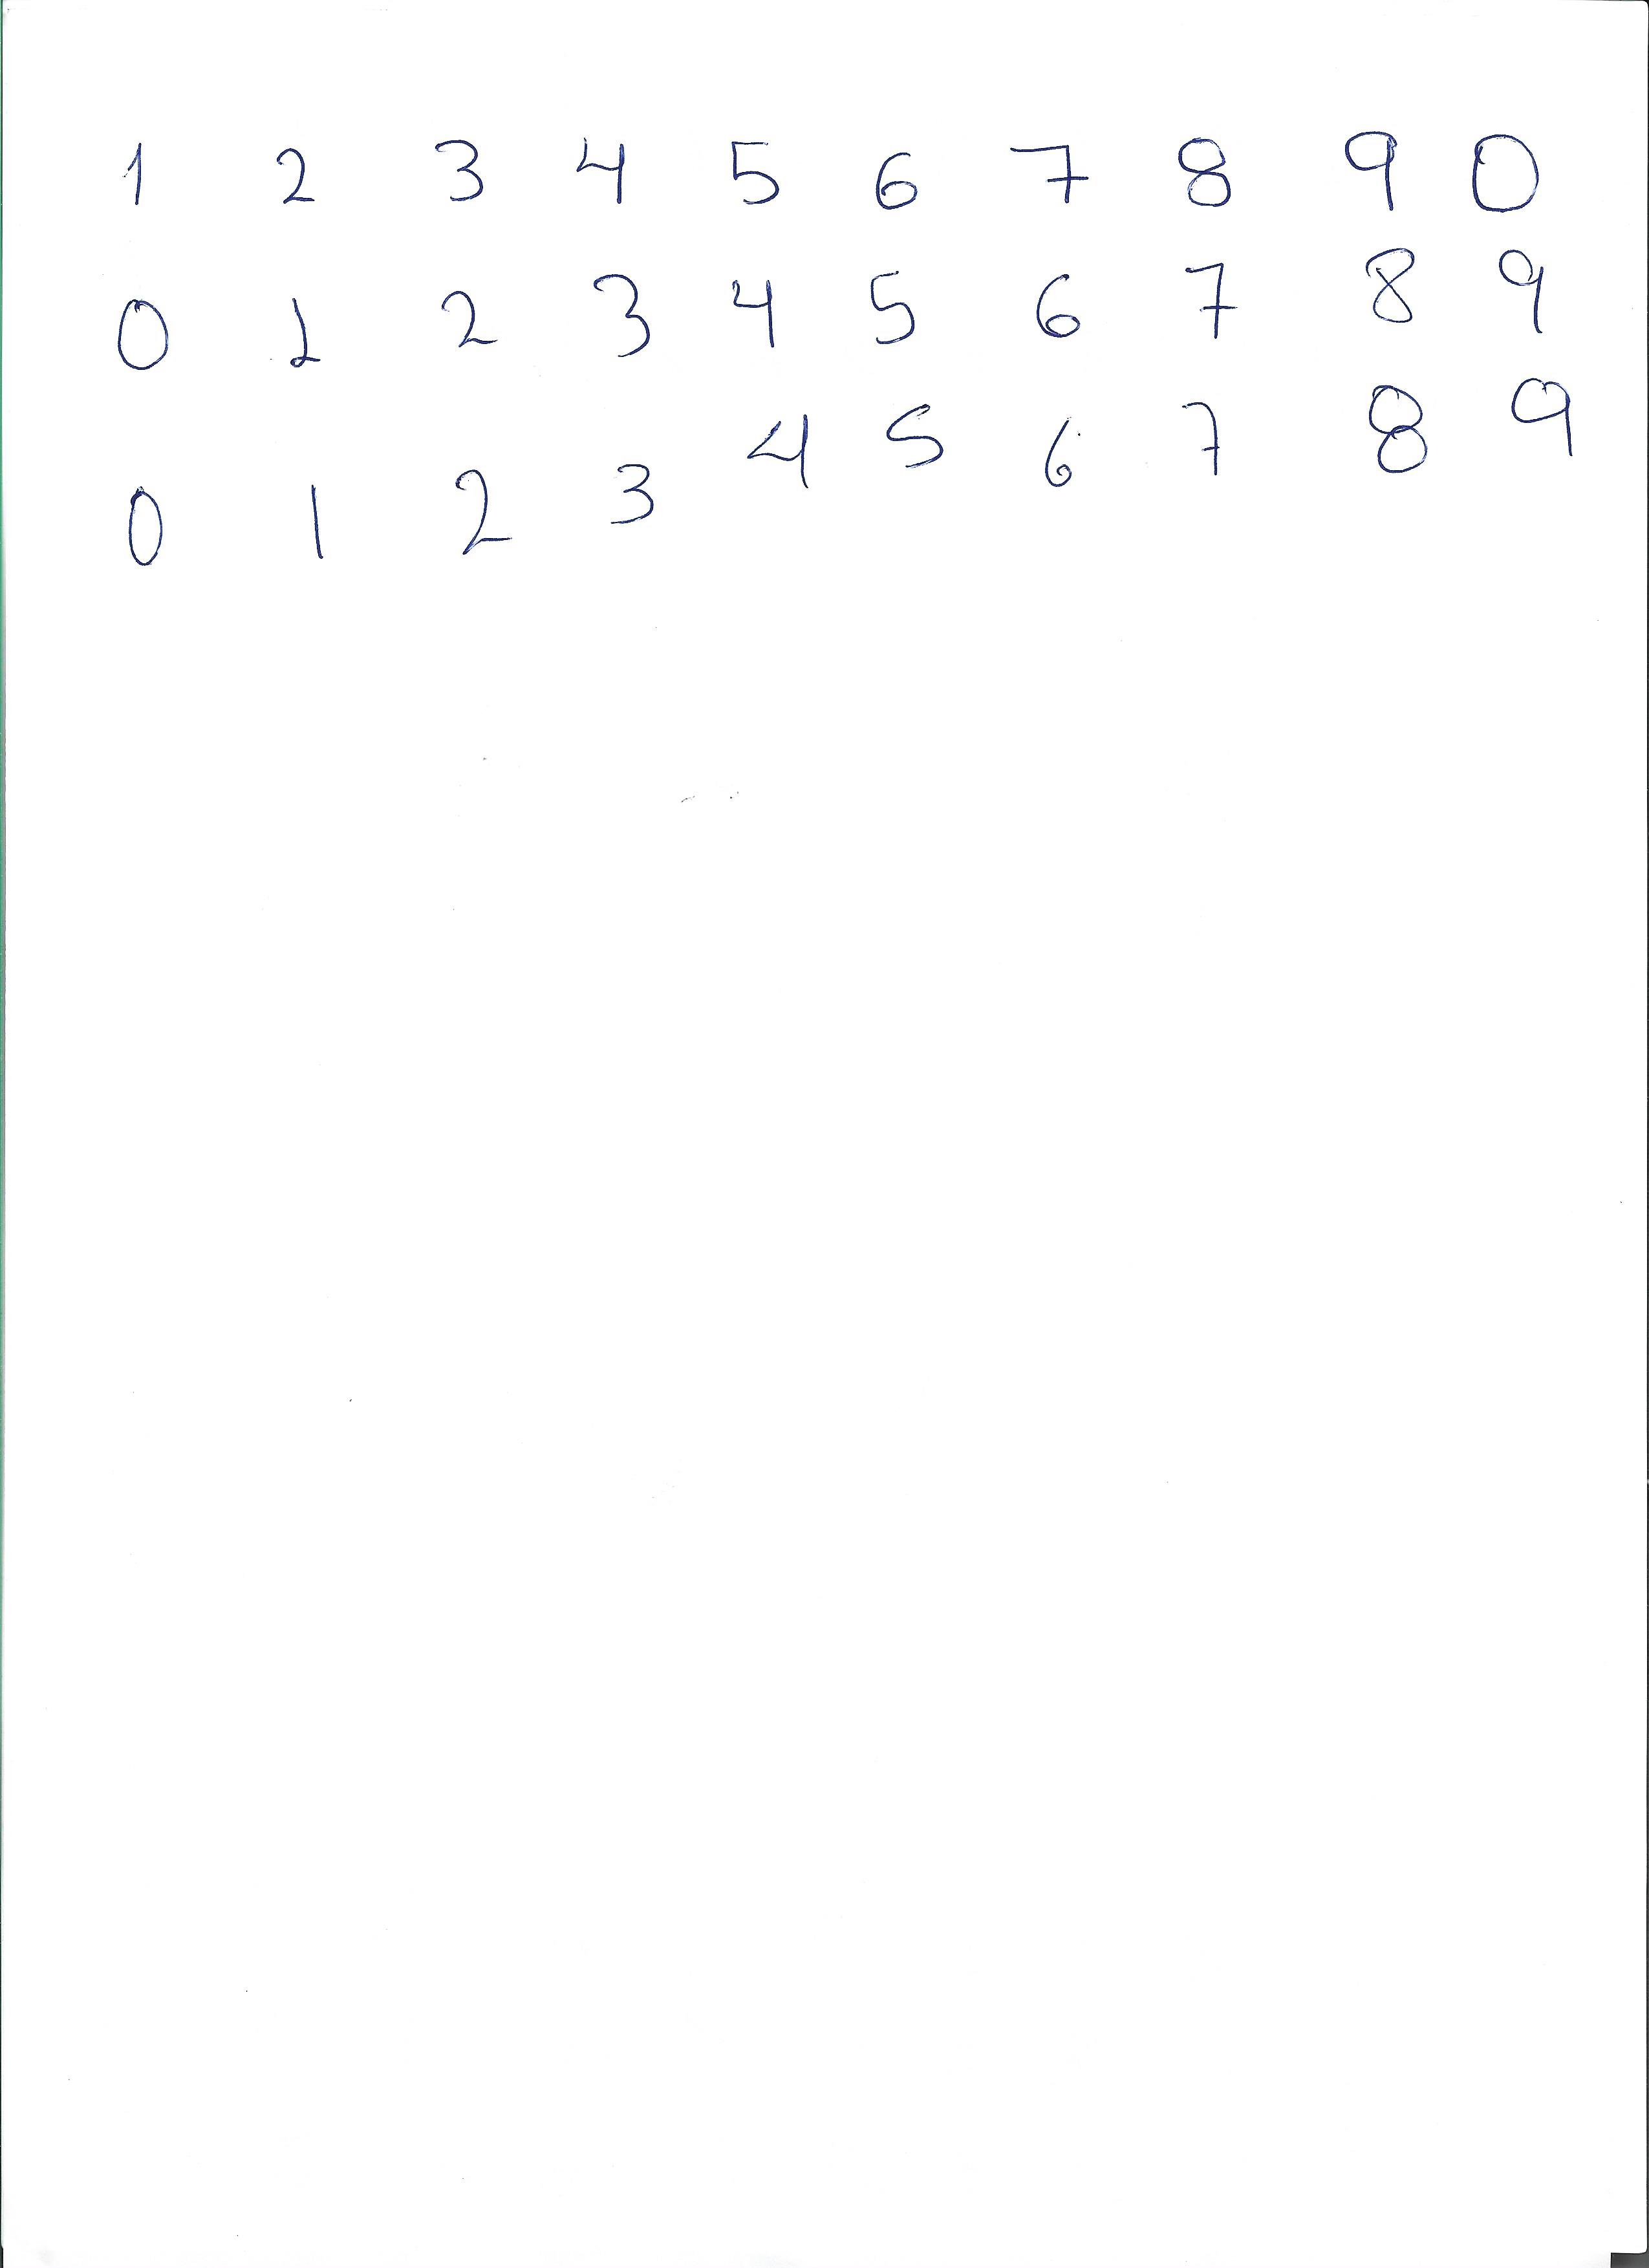 1 2 3 4 5 6 7 8 9 0
0 1 2 3 4 5 6 7 8 9
0 1 2 3 4 5 6 7 8 9